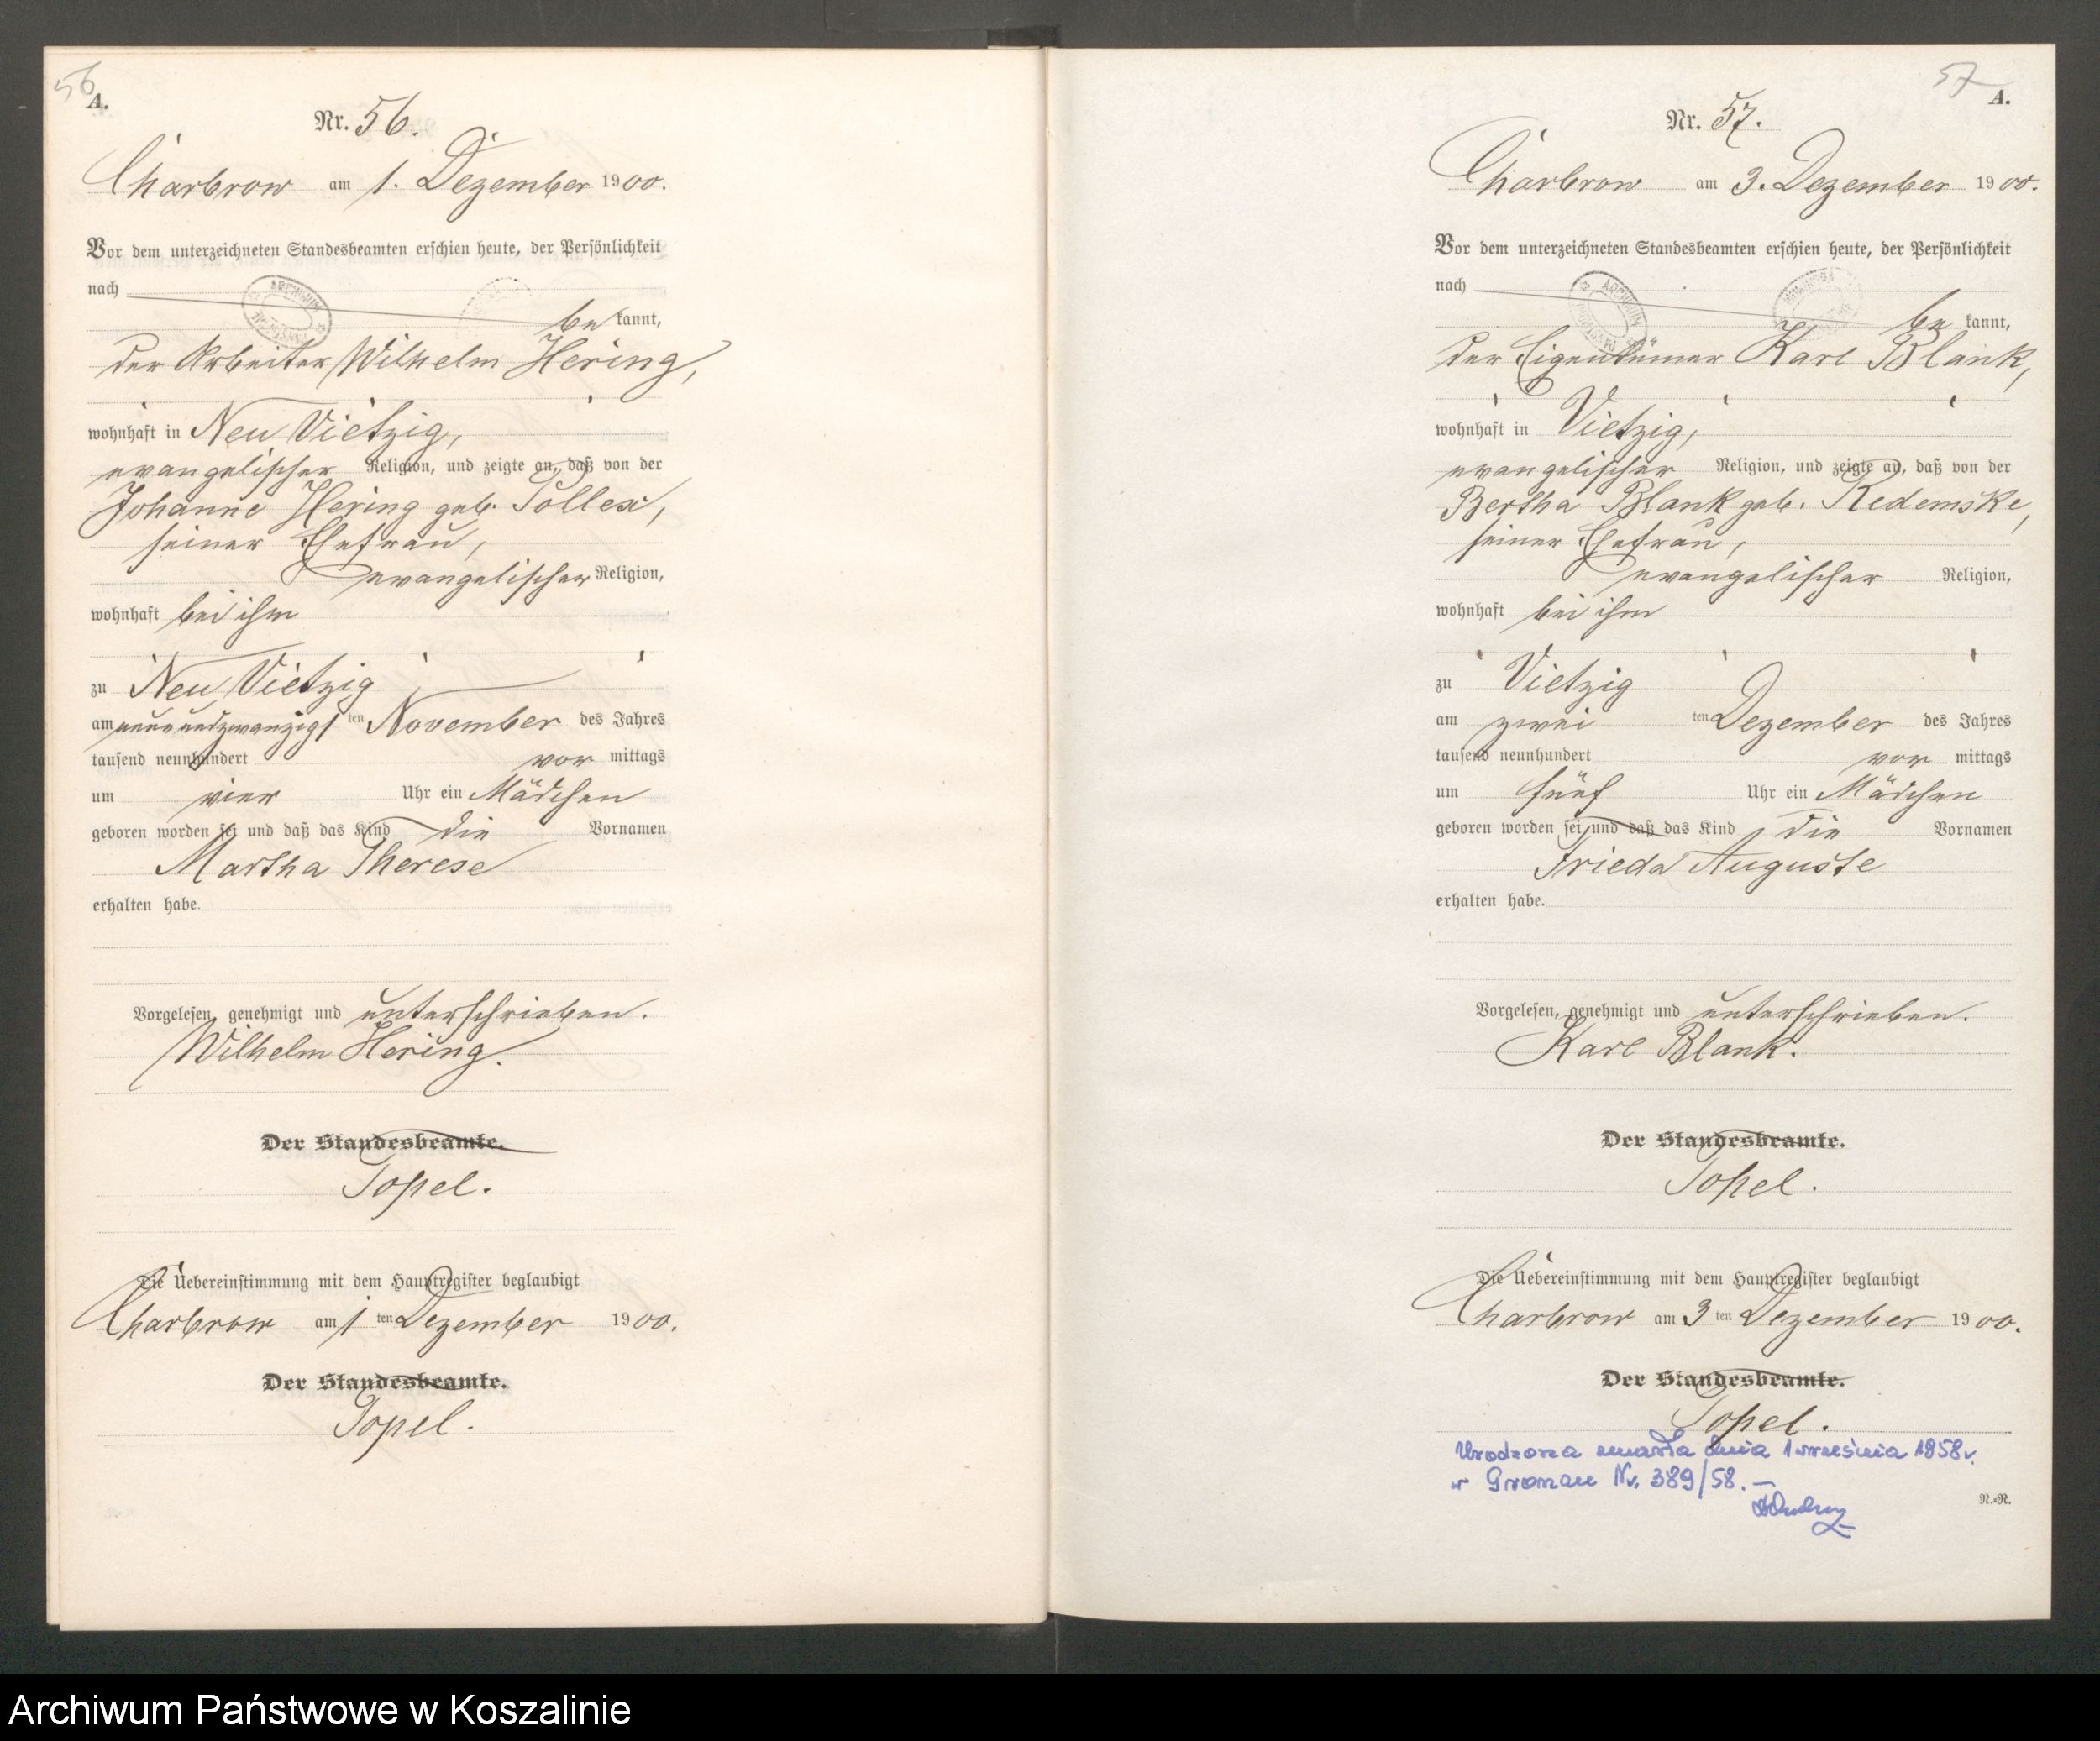 56
A.
Nr. 56.
Charbrow am 1. Dezember 1900.
Vor dem unterzeichneten Standesbeamten erschien heute, der Persönlichkeit
nach
be kannt,
der Arbeiter Wilhelm Hering,
wohnhaft in Neu Vietzig,
evangelischer Religion, und zeigte an, daß von der
Johanne Hering geb. Pollex,
seiner Ehefrau,
evangelischer Religion,
wohnhaft bei ihm
zu Neu Vietzig
am neunundzwanzigsten November des Jahres
tausend neunhundert vor mittags
um vier Uhr ein Mädchen
geboren worden sei und daß das Kind die Vornamen
Martha Therese
erhalten habe.
Vorgelesen, genehmigt und unterschrieben.
Wilhelm Hering.
Der Standesbeamte.
Topel.
Die Uebereinstimmung mit dem Hauptregister beglaubigt
Charbrow am 1 ten Dezember 1900.
Der Standesbeamte.
Topel.
57
A.
Nr. 57.
Charbrow am 3. Dezember 1900.
Vor dem unterzeichneten Standesbeamten erschien heute, der Persönlichkeit
nach
be kannt,
der Eigentümer Karl Blank,
wohnhaft in Vietzig,
evangelischer Religion, und zeigte an, daß von der
Bertha Blank geb. Redemske,
seiner Ehefrau,
evangelischer Religion,
wohnhaft bei ihm
zu Vietzig
am zwei ten Dezember des Jahres
tausend neunhundert vor mittags
um fünf Uhr ein Mädchen
geboren worden sei und daß das Kind die Vornamen
Frieda Auguste
erhalten habe.
Vorgelesen, genehmigt und unterschrieben.
Karl Blank.
Der Standesbeamte.
Topel.
Die Uebereinstimmung mit dem Hauptregister beglaubigt
Charbrow am 3 ten Dezember 1900.
Der Standesbeamte.
Topel.
Urodzona zmarła dnia 1 września 1958 r.
w Gronau Nr. 389/58. —
R.=R.
Archiwum Państwowe w Koszalinie